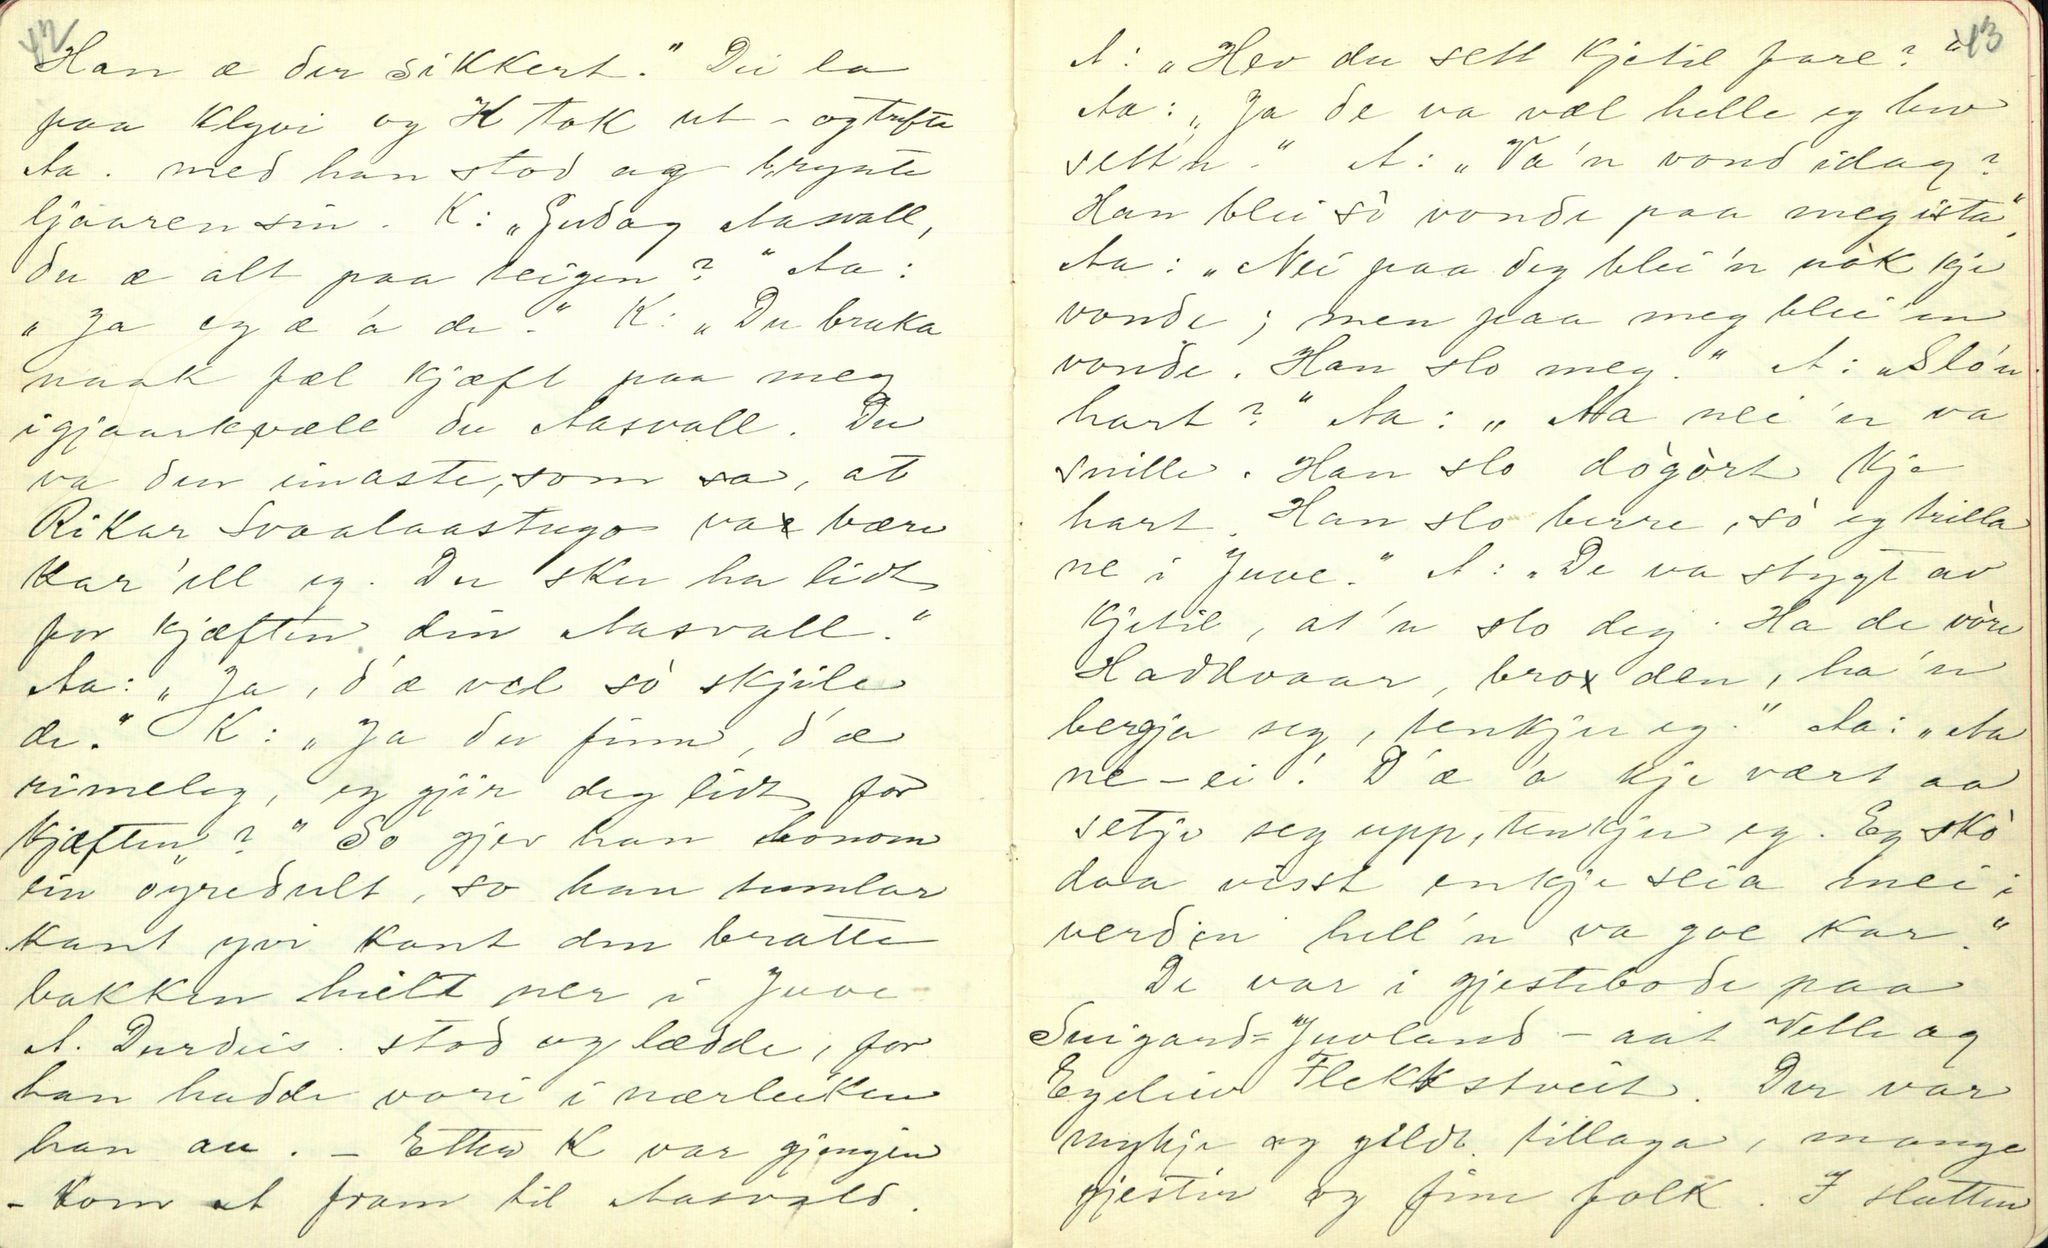 42
Han æ der sikkert." Dei la
paa klyvi og K tok ut - og trefte
Aa. med han stod og brynte
ljaaren sin. K: „Gudag Aasvall,
du æ alt paa teigen?" Aa:
„Ja eg æ 'a de." K: „Du bruka
naak fæl kjæft paa meg
igjaarkvæle du Aasvall. Du
va den einaste, som sa, at
Rikar Svaalaastugo va bære
kar 'ell eg. Du sku ha lidt
for kjæften din Aasvall."
Aa: „Ja, d'æ vel sò skjile
de." K: „Ja du finn, d'æ
rimeleg, eg gjir deg lidt før
kjæften?" So gjev han honom
ein øyredult, so han tumlar
kant yvi kant den bratte
bakken heilt ner i Juve
A. Durdeis. stod og lædde, for
han hadde vori i nærleiken
han au. - Etter K var gjengin
- kom A fram til Aasvald.
43
A: „Hev du sett Kjetil fare?"
Aa: „Ja de va væl helle eg hev
sett'n." A: „Va'n vond idag?
Han blei sò vonde paa meg ista".
Aa: „Nei paa deg blei'n nòk kje
vonde; men paa meg blei'en
vonde. Han slo meg." A: „Slo'n
hart?" Aa: „Aa nei 'n va
snille. Han slo dògòrt kje
hart. Han slo berre, sò eg trilla
ne i Juve." A: „De va stygt av
Kjetil, at'n slo deg. Ha de vòre
Haddvaar, bro den, ha'n
bergja seg, tenkjer eg." Aa: „Aa
ne-ei! D'æ 'a kje vært aa
setje seg upp, tenkjer eg. Eg skò
daa visst enkje sleia mei i
verden hell'n va goe kar."
De var i gjestebode paa
Suigard-Juvland - aat Velle og
Egeleiv Flekkstveit. Der var
mykje og gildt tillaga, mange
gjestir og fine folk. I slutten